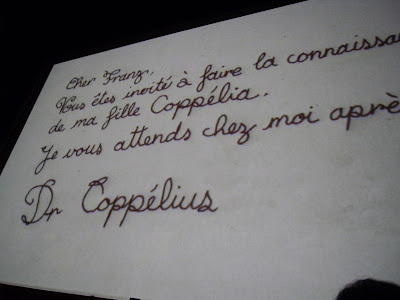 Cher Franz,
Vous êtes invité à faire la connaissa
de ma fille Coppélia.
Je vous attends chez moi aprè
Dr Coppélius